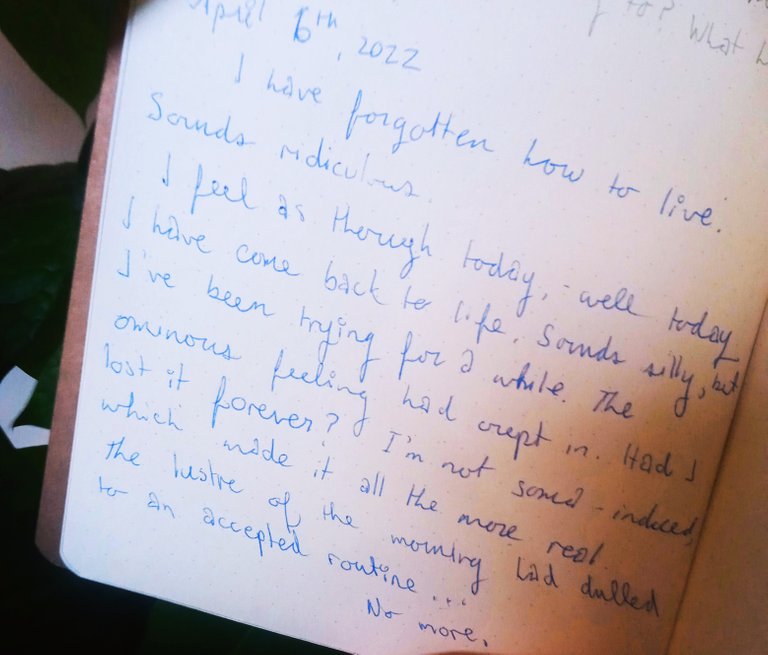 to? What
April 6th, 2022
I have forgotten how to live.
Sounds ridiculous.
I feel as though today, - well today
I have come back to life. Sounds silly, but
I've been trying for a while. The
ominous feeling had crept in. Had I
lost it forever? I'm not
which made it all the more real.
The lustre of the morning had dulled
to an accepted routine...
No more.